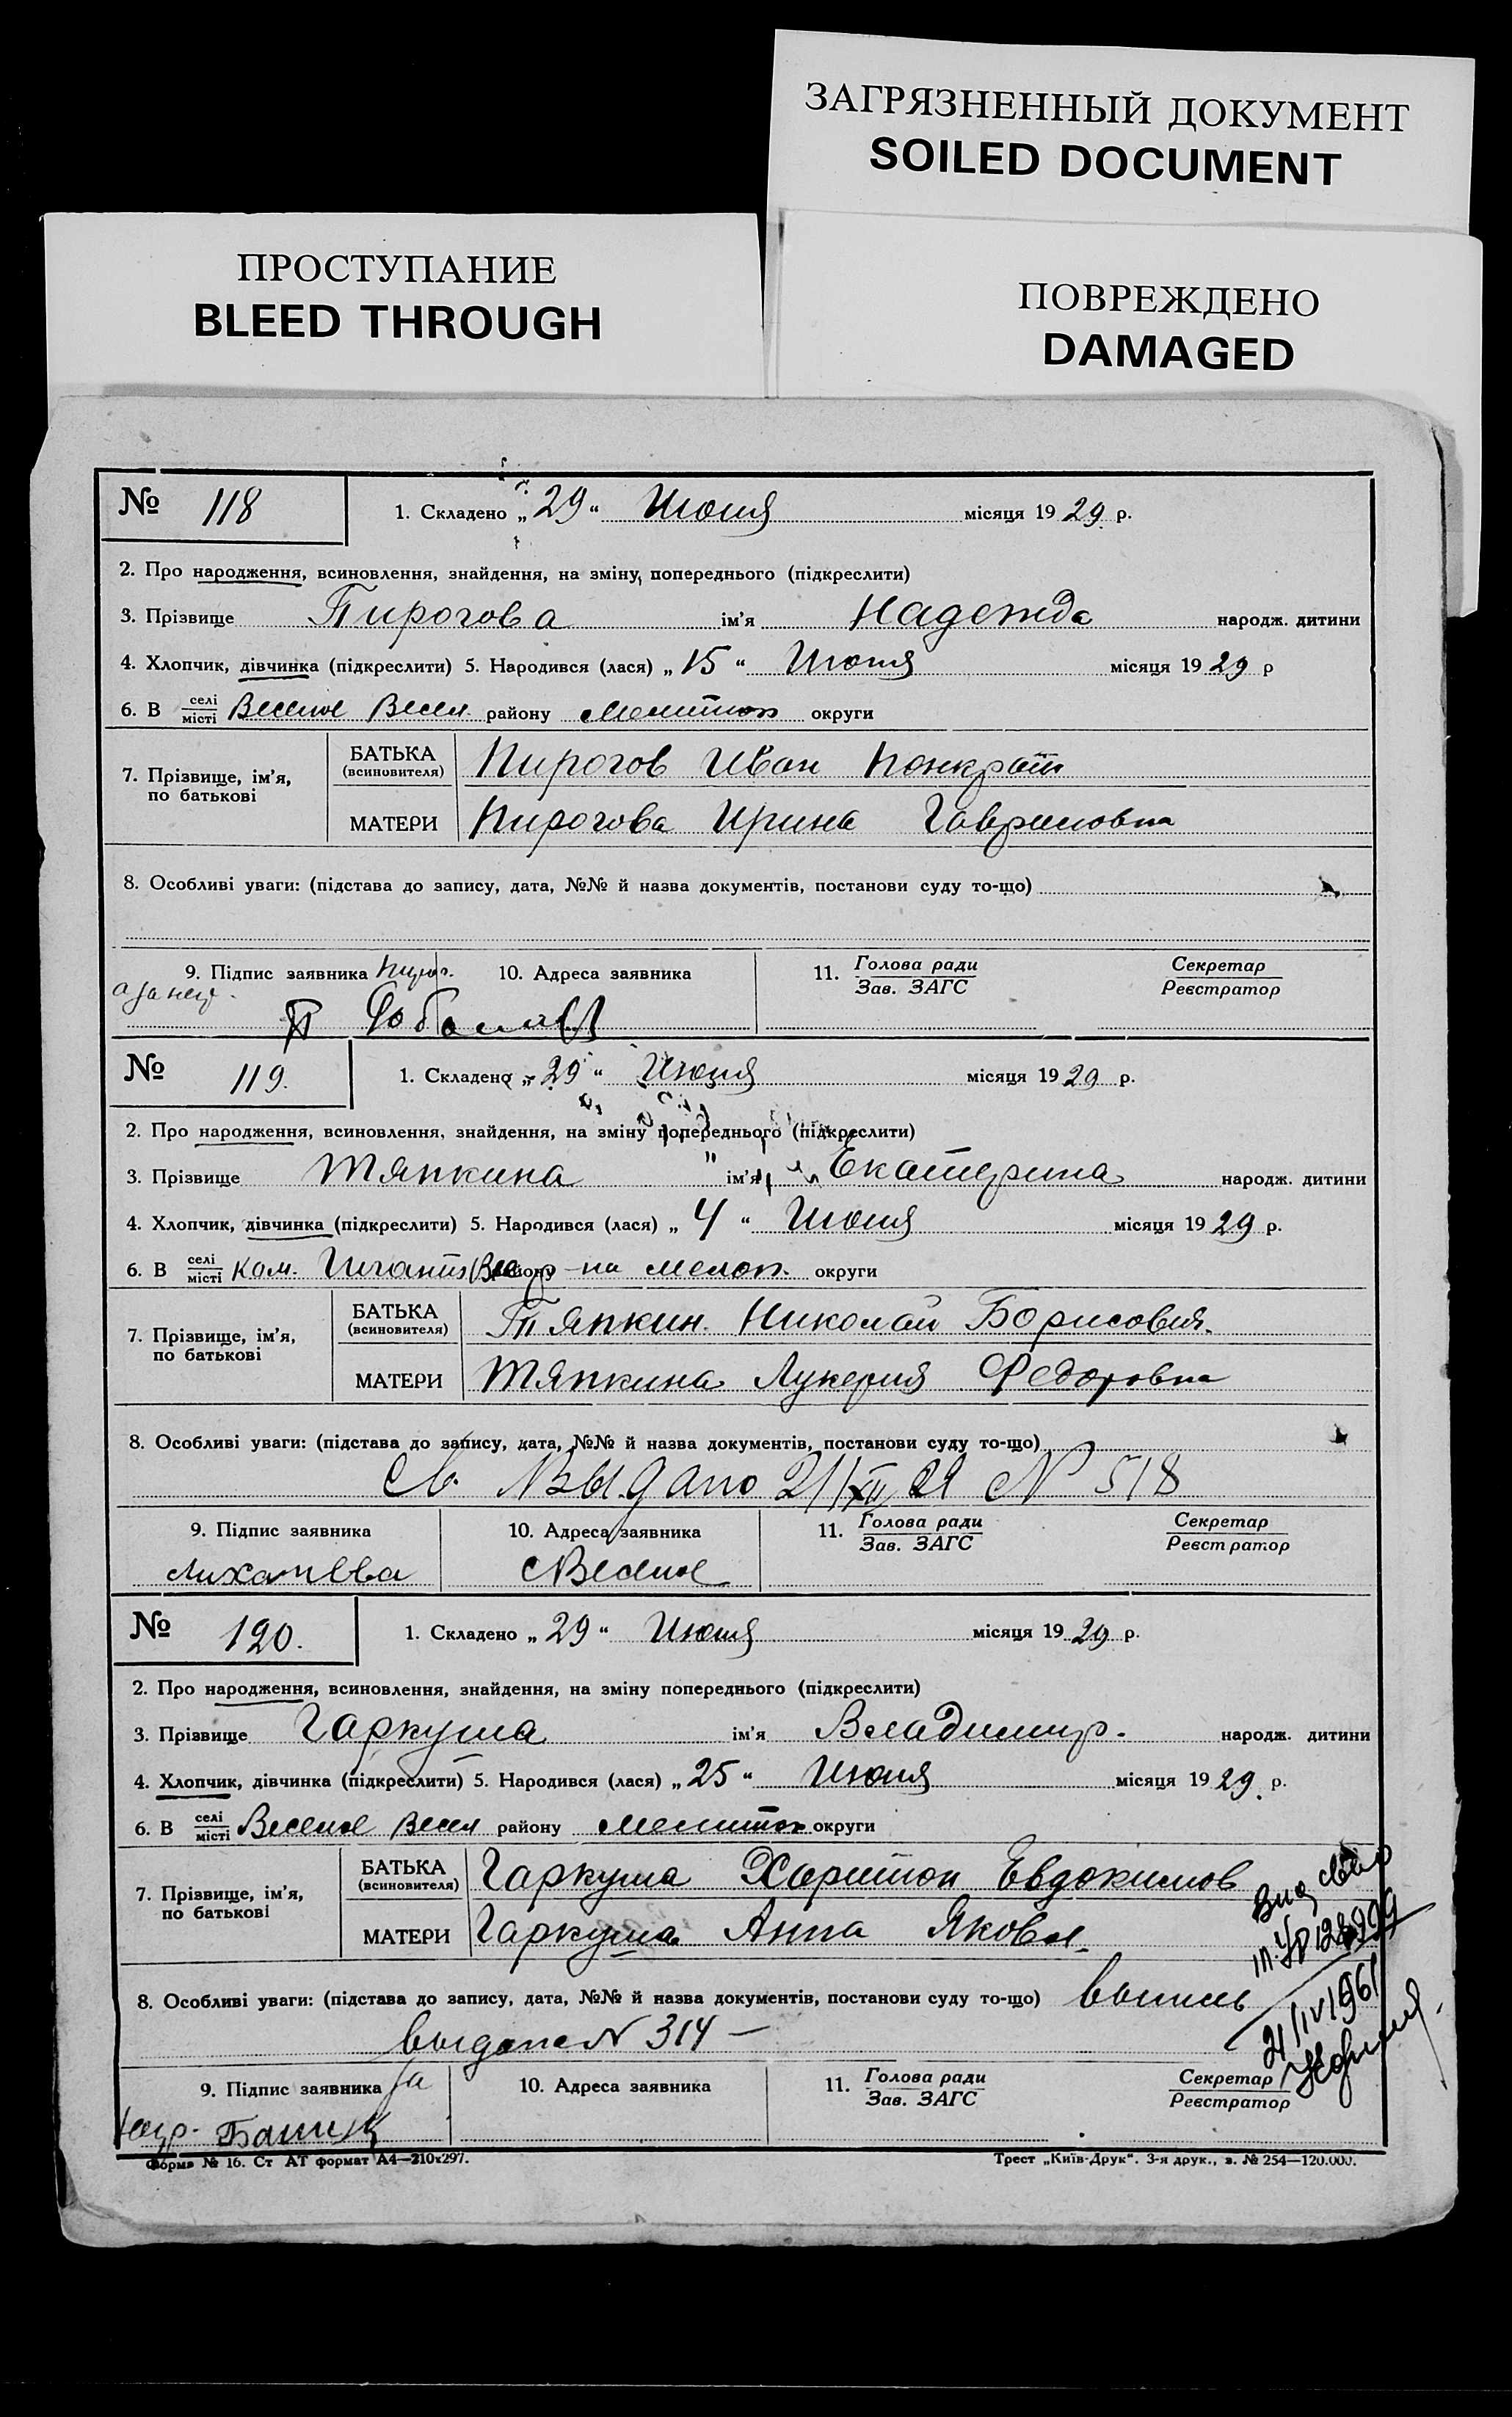 ЗАГРЯЗНЕННЫЙ ДОКУМЕНТ
SOILED DOCUMENT
ПРОСТУПАНИЕ
BLEED THROUGH
ПОВРЕЖДЕНО
DAMAGED
№ 118 1. Складено „29“ Июня місяця 1929 р.
2. Про народження, всиновлення, знайдення, на зміну попереднього (підкреслити)
3. Прізвище Пирогова ім'я Надежда народж. дитини
4. Хлопчик, дівчинка (підкреслити) 5. Народився (лася) „15“ Июня місяця 1929 р
6. В селі місті Веселое Весел. району Мелитоп округи
7. Прізвище, ім'я, по батькові БАТЬКА (всиновителя) Пирогов Иван Панкрат
МАТЕРИ Пирогова Ирина Гавриловна
8. Особливі уваги: (підстава до запису, дата, №№ й назва документів, постанови суду то-що)
9. Підпис заявника Пирог. 10. Адреса заявника 11. Голова ради Зав. ЗАГС Секретар Реєстратор
а за неу.
№ 119. 1. Складено „29“ Июня місяця 1929 р.
2. Про народження, всиновлення, знайдення, на зміну попереднього (підкреслити)
3. Прізвище Тяпкина ім'я Екатерина народж. дитини
4. Хлопчик, дівчинка (підкреслити) 5. Народився (лася) „4“ Июня місяця 1929 р.
6. В селі місті Ком. Гигант району на Мелоп. округи
7. Прізвище, ім'я, по батькові БАТЬКА (всиновителя) Тяпкин Николай Борисович.
МАТЕРИ Тяпкина Лукерия Федоровна
8. Особливі уваги: (підстава до запису, дата, №№ й назва документів, постанови суду то-що)
св. Выдано 21/XII 29 № 518
9. Підпис заявника 10. Адреса заявника 11. Голова ради Зав. ЗАГС Секретар Реєстратор
с Веселое
№ 120. 1. Складено „29“ Июня місяця 1929 р.
2. Про народження, всиновлення, знайдення, на зміну попереднього (підкреслити)
3. Прізвище Гаркуша ім'я Владимир. народж. дитини
4. Хлопчик, дівчинка (підкреслити) 5. Народився (лася) „25“ Июня місяця 1929. р.
6. В селі місті Веселое Весел району Мелитоп округи
7. Прізвище, ім'я, по батькові БАТЬКА (всиновителя) Гаркуша Харитон Евдокимов
МАТЕРИ Гаркуша Анна Яковл.
8. Особливі уваги: (підстава до запису, дата, №№ й назва документів, постанови суду то-що) выпись
выдана № 314 —
21/IV 1961
9. Підпис заявника за 10. Адреса заявника 11. Голова ради Зав. ЗАГС Секретар Реєстратор
Форма № 16. Ст АТ формат А4—210х297. Трест „Київ-Друк“. 3-я друк., з. № 254—120.000.